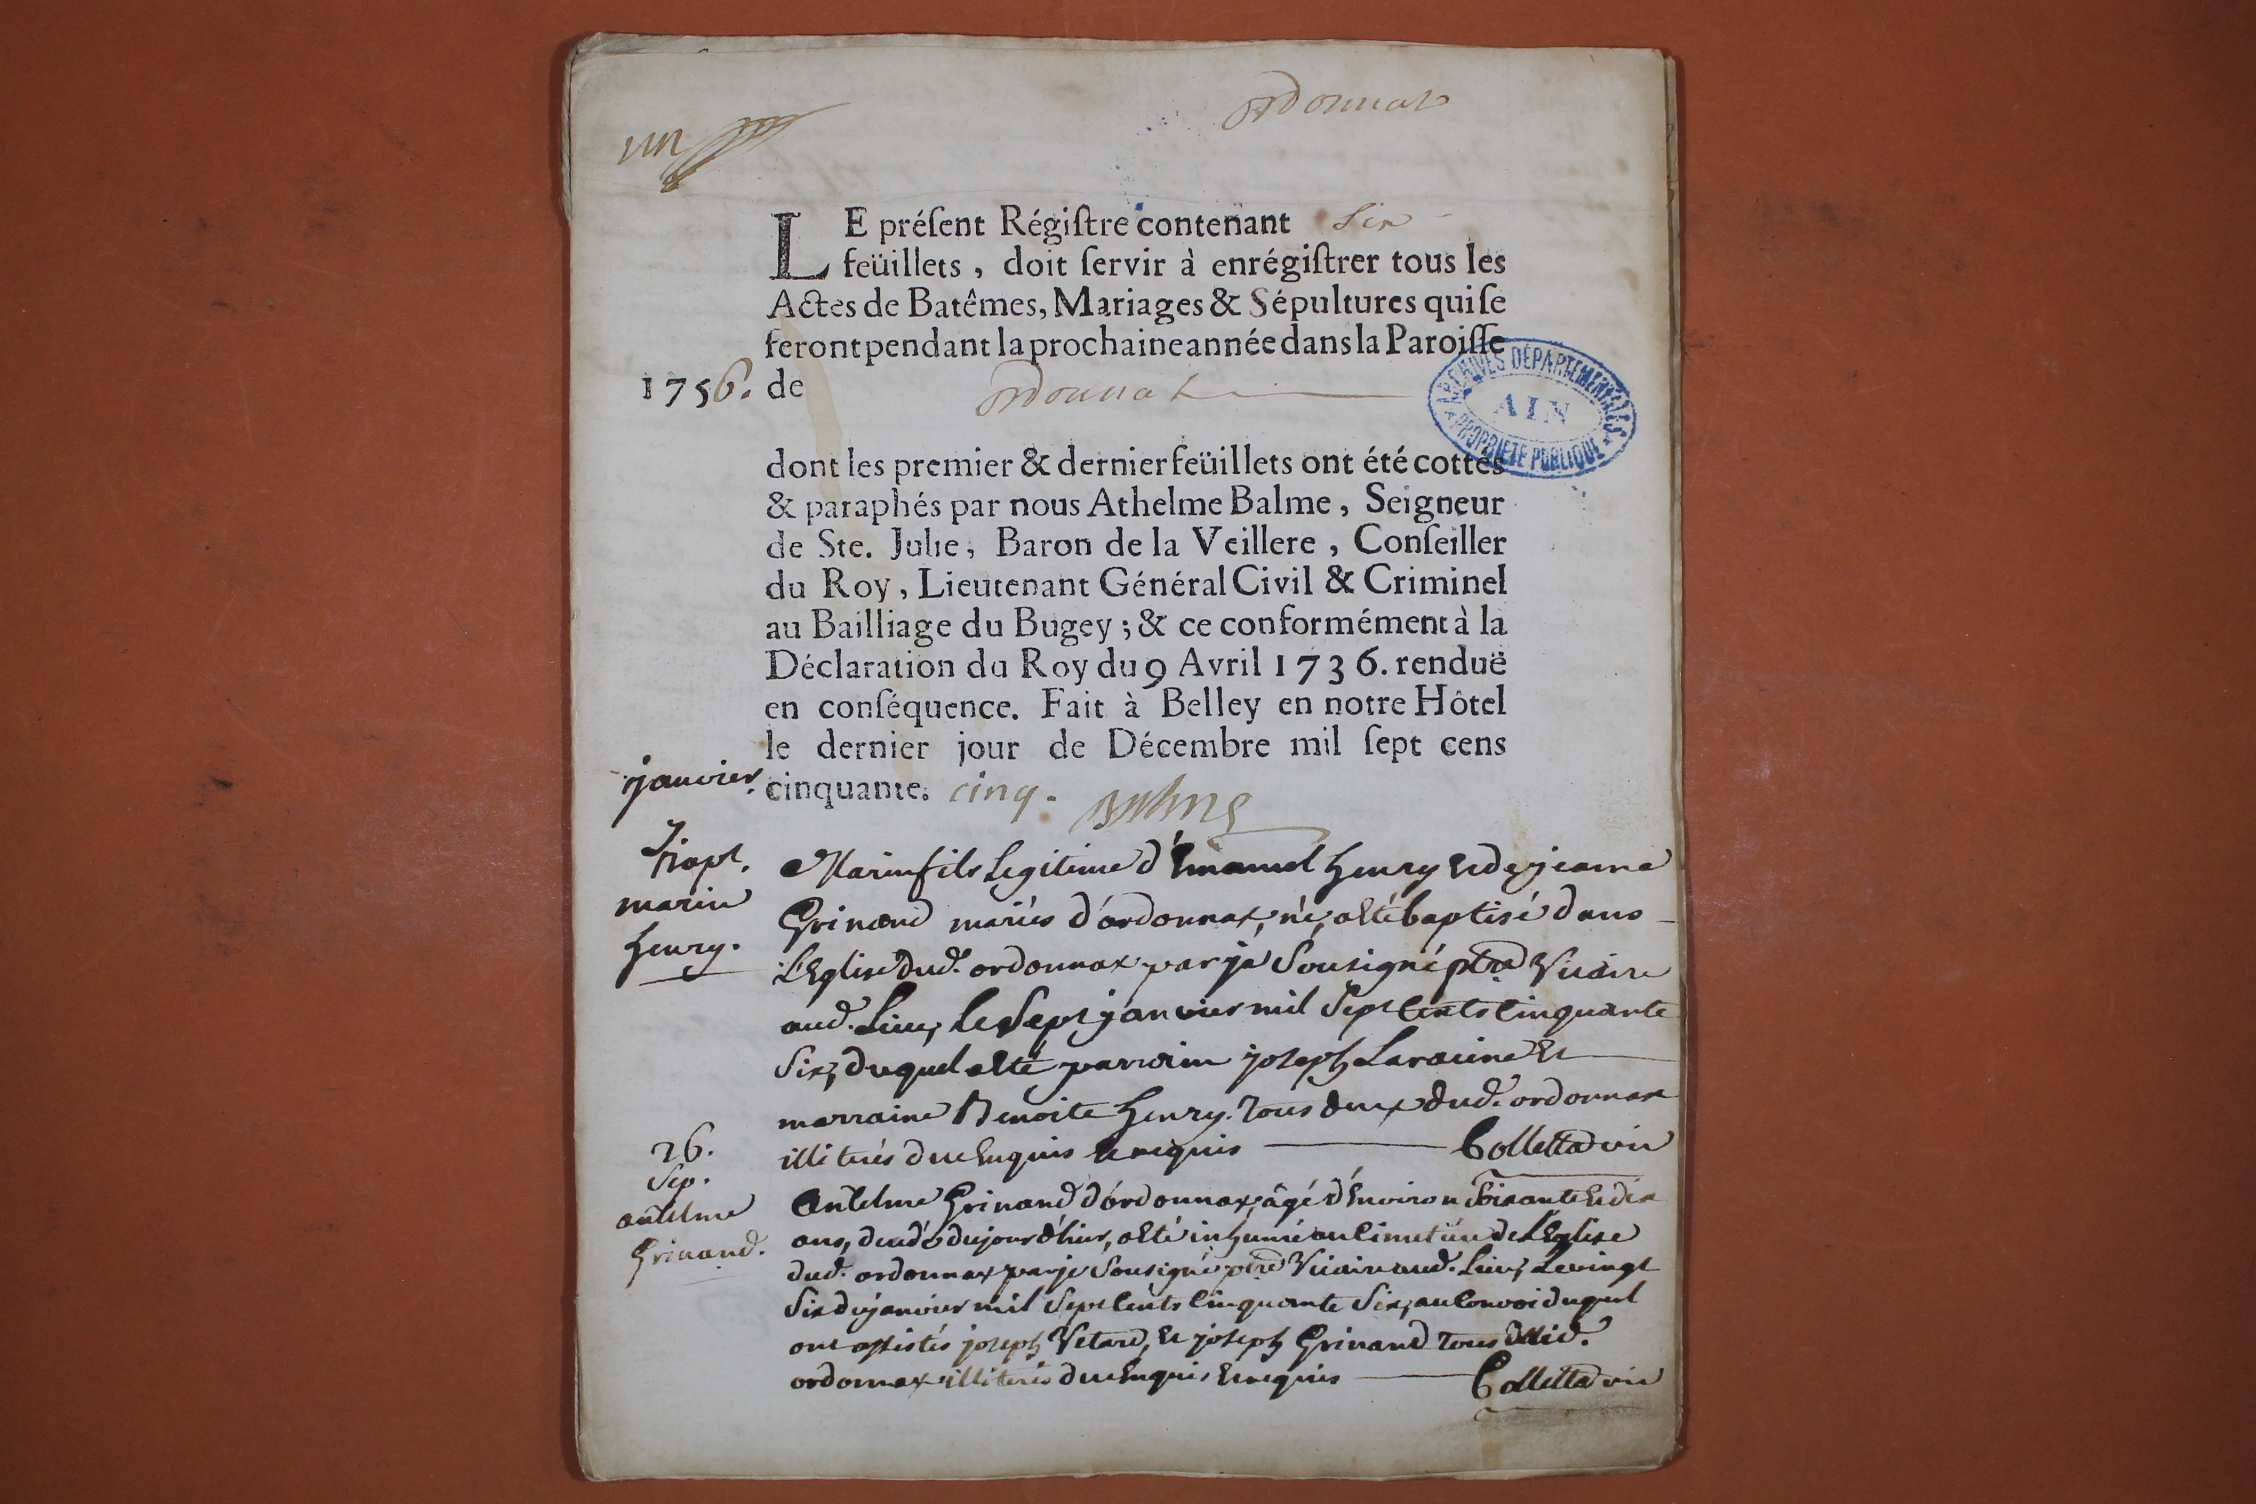 ordonnat
un
LE préſent Régiſtre contenant Six
feüillets, doit ſervir à enrégiſtrer tous les
Actes de Batêmes, Mariages & Sépultures qui ſe
feront pendant la prochaine année dans la Paroiſſe
1756. de ordonnat
ARCHIVES DÉPARTEMENTALES
AIN
PROPRIETE PUBLIQUE
dont les premier & dernier feüillets ont été cottés
& paraphés par nous Athelme Balme, Seigneur
de Ste. Julie, Baron de la Veillere, Conſeiller
du Roy, Lieutenant Général Civil & Criminel
au Bailliage du Bugey; & ce conformément à la
Déclaration du Roy du 9 Avril 1736. renduë
en conſéquence. Fait à Belley en notre Hôtel
le dernier jour de Décembre mil ſept cens
cinquante. cinq. Balme
janvier.
7
bapt.
marin
henry.
Marin fils Legitime d'Emanuel henry et de jeanne
Grinand mariés d'ordonnax, né, a eté baptisé dans
L'Eglise dud. ordonnax par je Sousigné ptre Vicaire
aud. Lieu, le Sept janvier mil Sept Cents Cinquante
Six, duquel a eté parrain joseph Laracine et
marraine Benoite henry. tous deux dud. ordonnax
illiterés de ce Enquis et requis Colletta vic
26.
Sep.
antelme
Grinand.
Antelme Grinand d'ordonnax, âgé d'Environ Soixante et dix
ans, decedé du jour d'hier, a eté inhumé au Cimetiere de L'Eglise
dud. ordonnax par je Sousigné ptre Vicaire aud. Lieu, Le vingt
Six de janvier mil Sept Cents Cinquante Six, au Convoi duquel
ont assistés joseph Vetard, et joseph Grinand tous dud.
ordonnax illiterés de ce Enquis et requis Colletta vic